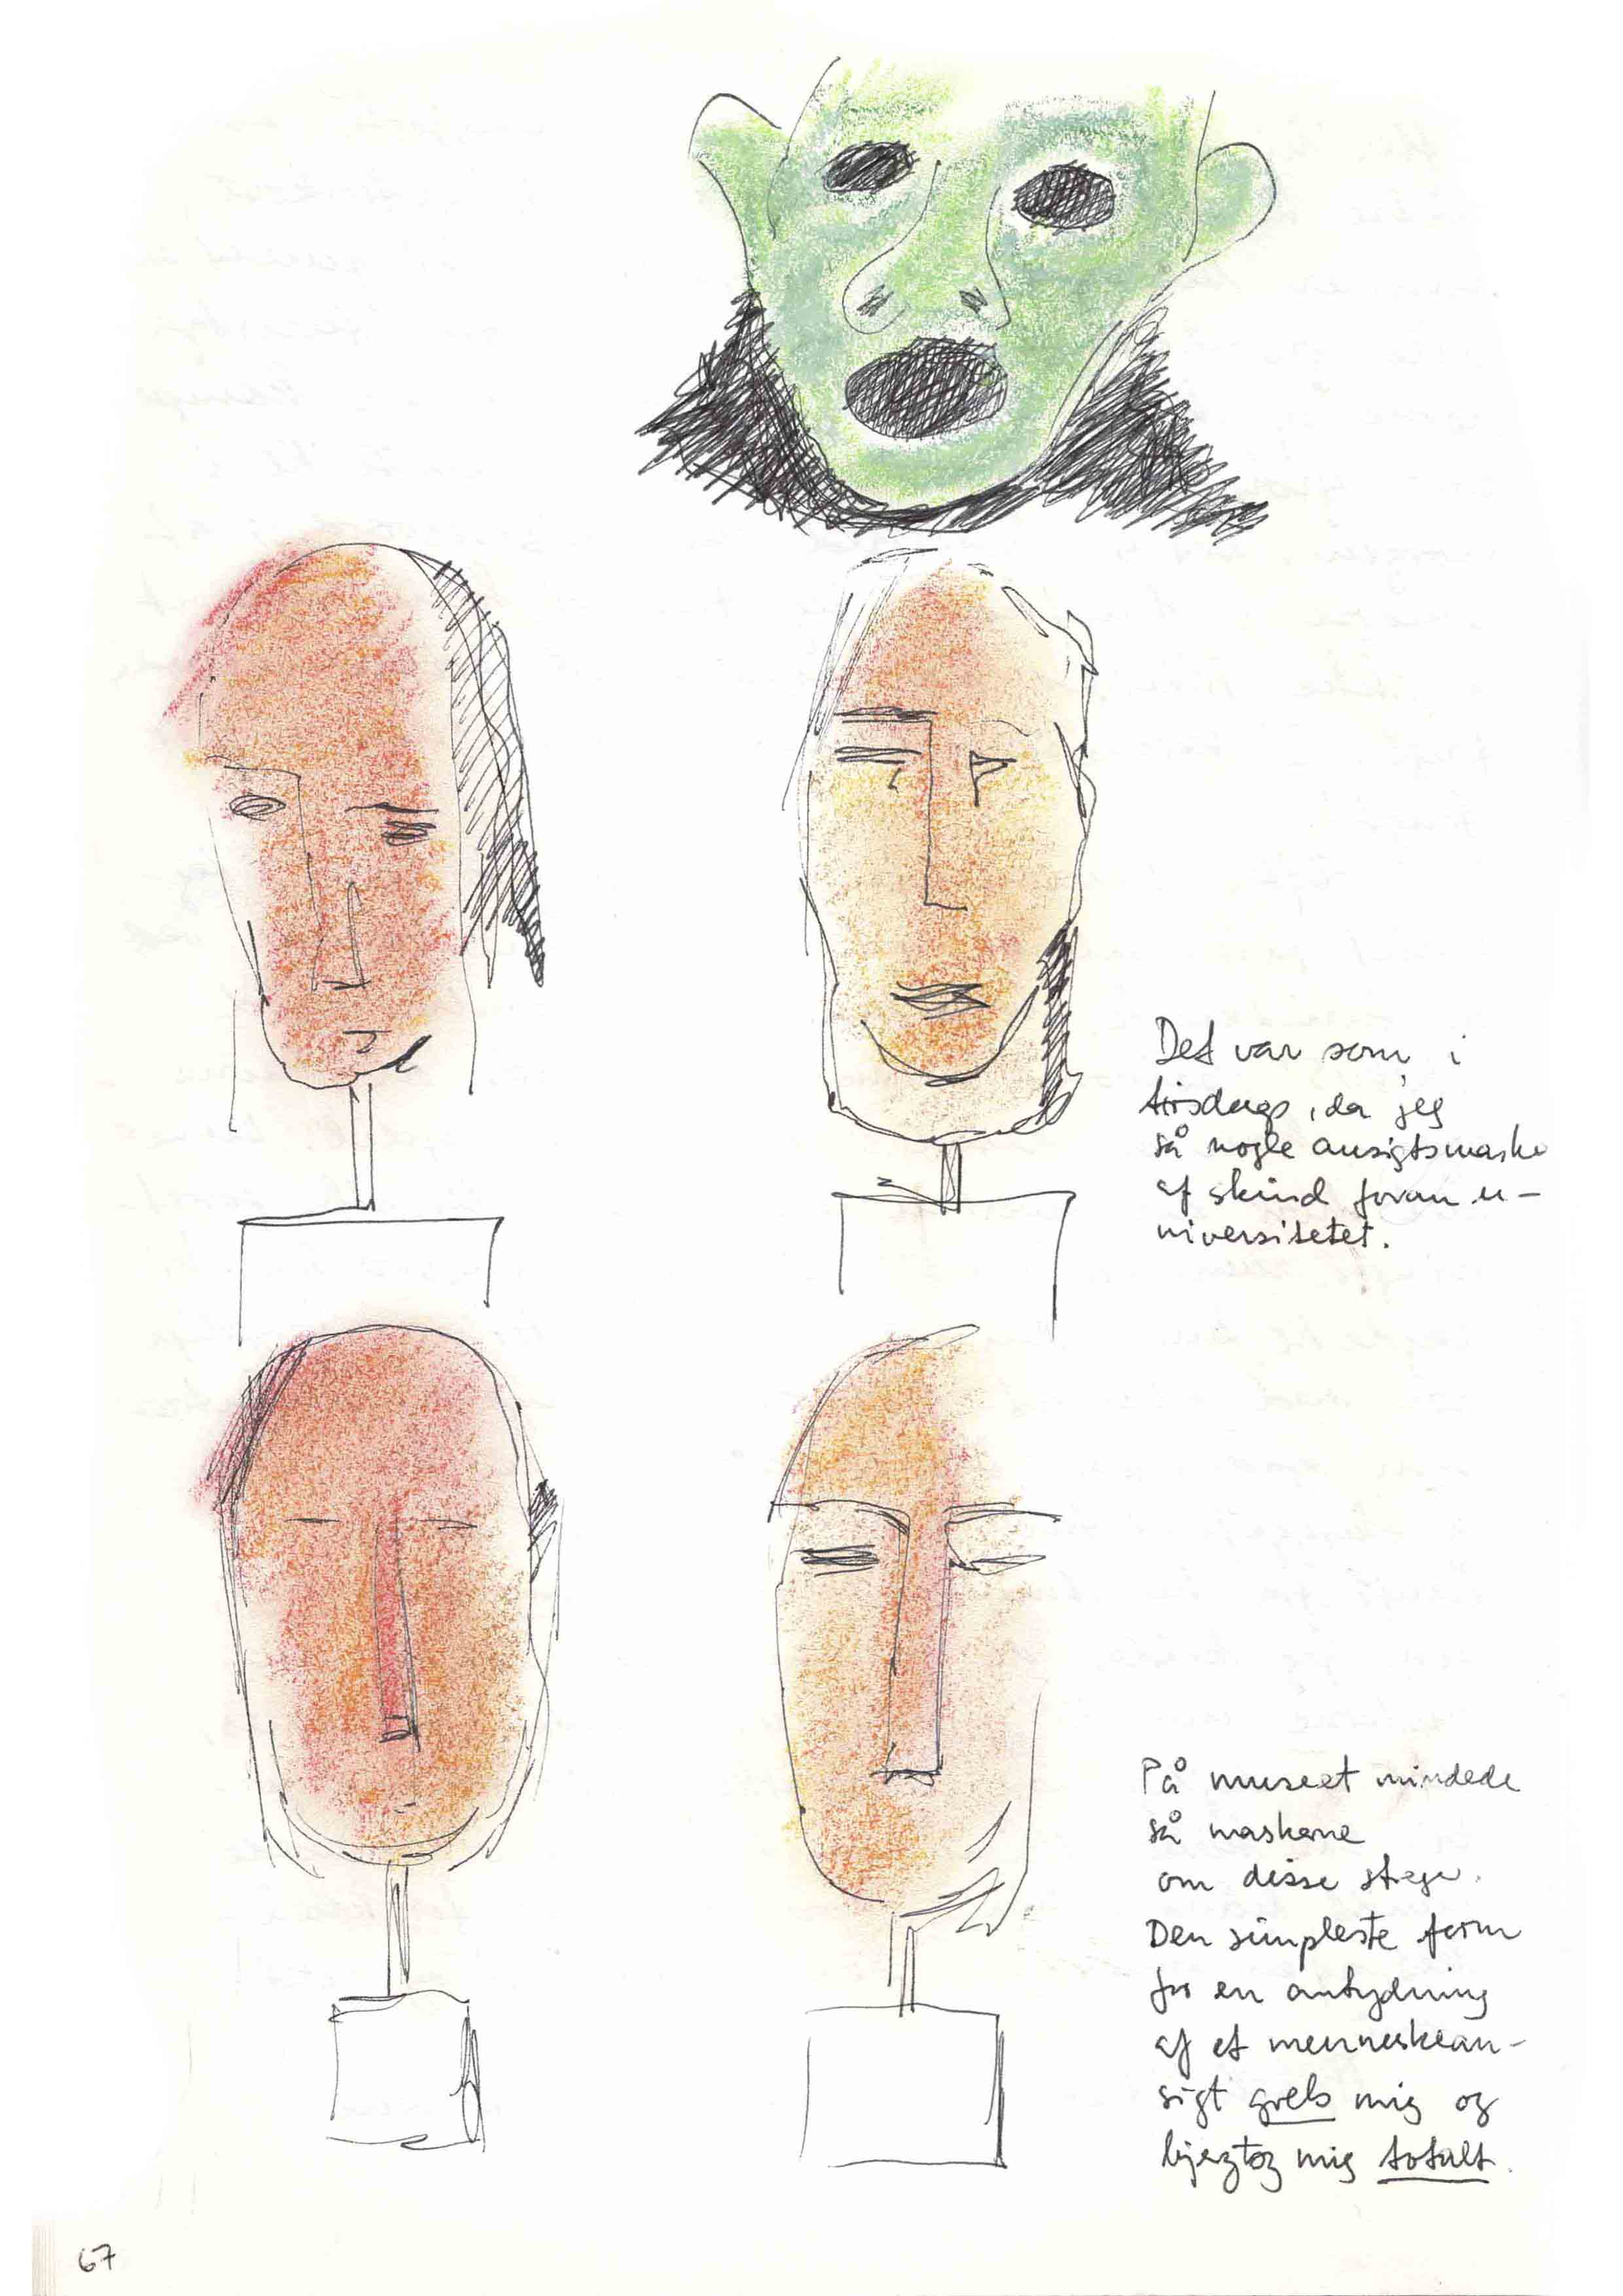 Det var som i
tirsdags, da jeg
så nogle ansigtsmaske
af skind foran u-
niversitetet.
På museet mindede
så maskerne
om disse
Den simpleste form
for en antydning
af et menneskean-
sigt greb mig og
bjergtog mig totalt.
67